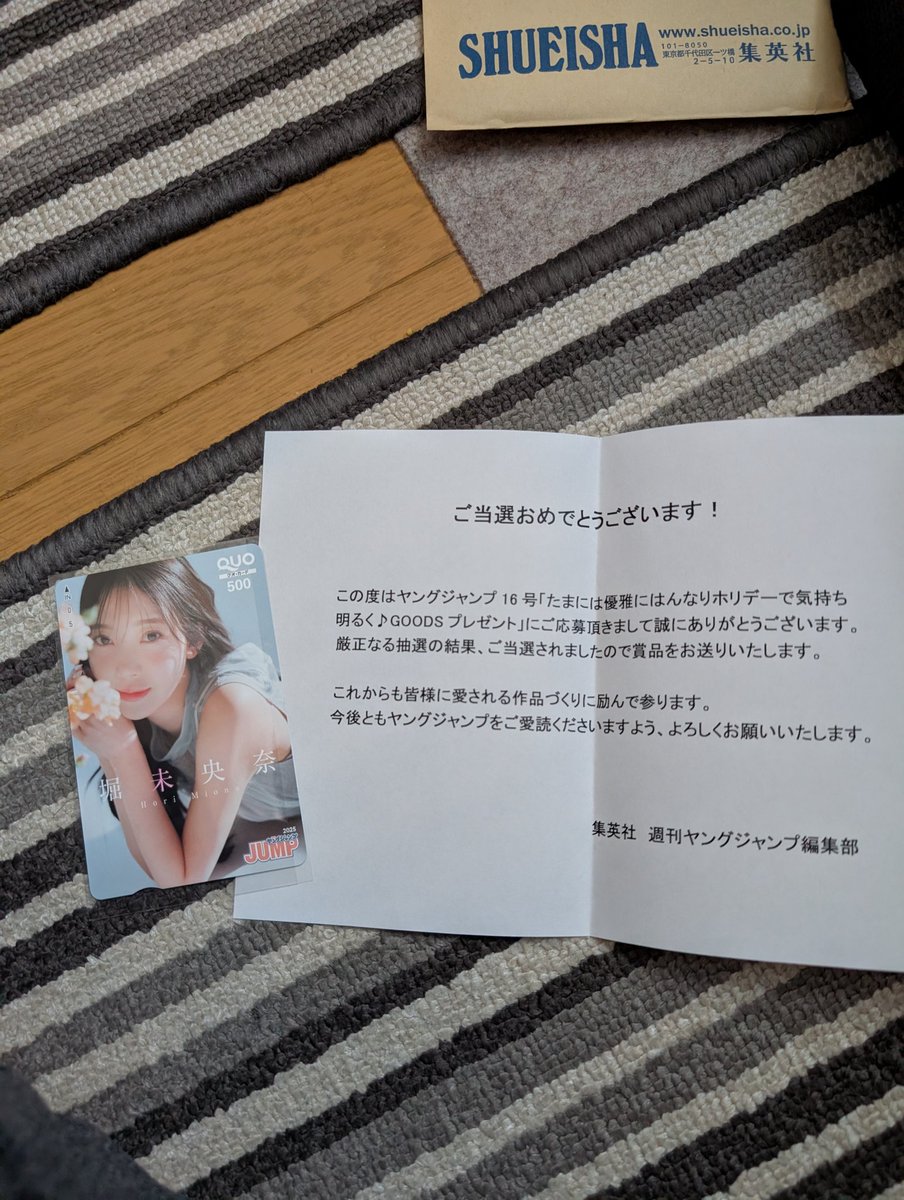 SHUEISHA
www.shueisha.co.jp
101-8050
東京都千代田区一ツ橋
2-5-10
集英社
ご当選おめでとうございます！
この度はヤングジャンプ 16 号「たまには優雅にはんなりホリデーで気持ち
明るく♪GOODS プレゼント」にご応募頂きまして誠にありがとうございます。
厳正なる抽選の結果、ご当選されましたので賞品をお送りいたします。
これからも皆様に愛される作品づくりに励んで参ります。
今後ともヤングジャンプをご愛読くださいますよう、よろしくお願いいたします。
集英社 週刊ヤングジャンプ編集部
QUO
クオ・カード
500
IN
0
5
堀 未 央 奈
Hori Miona
2025
ヤングジャンプ
JUMP